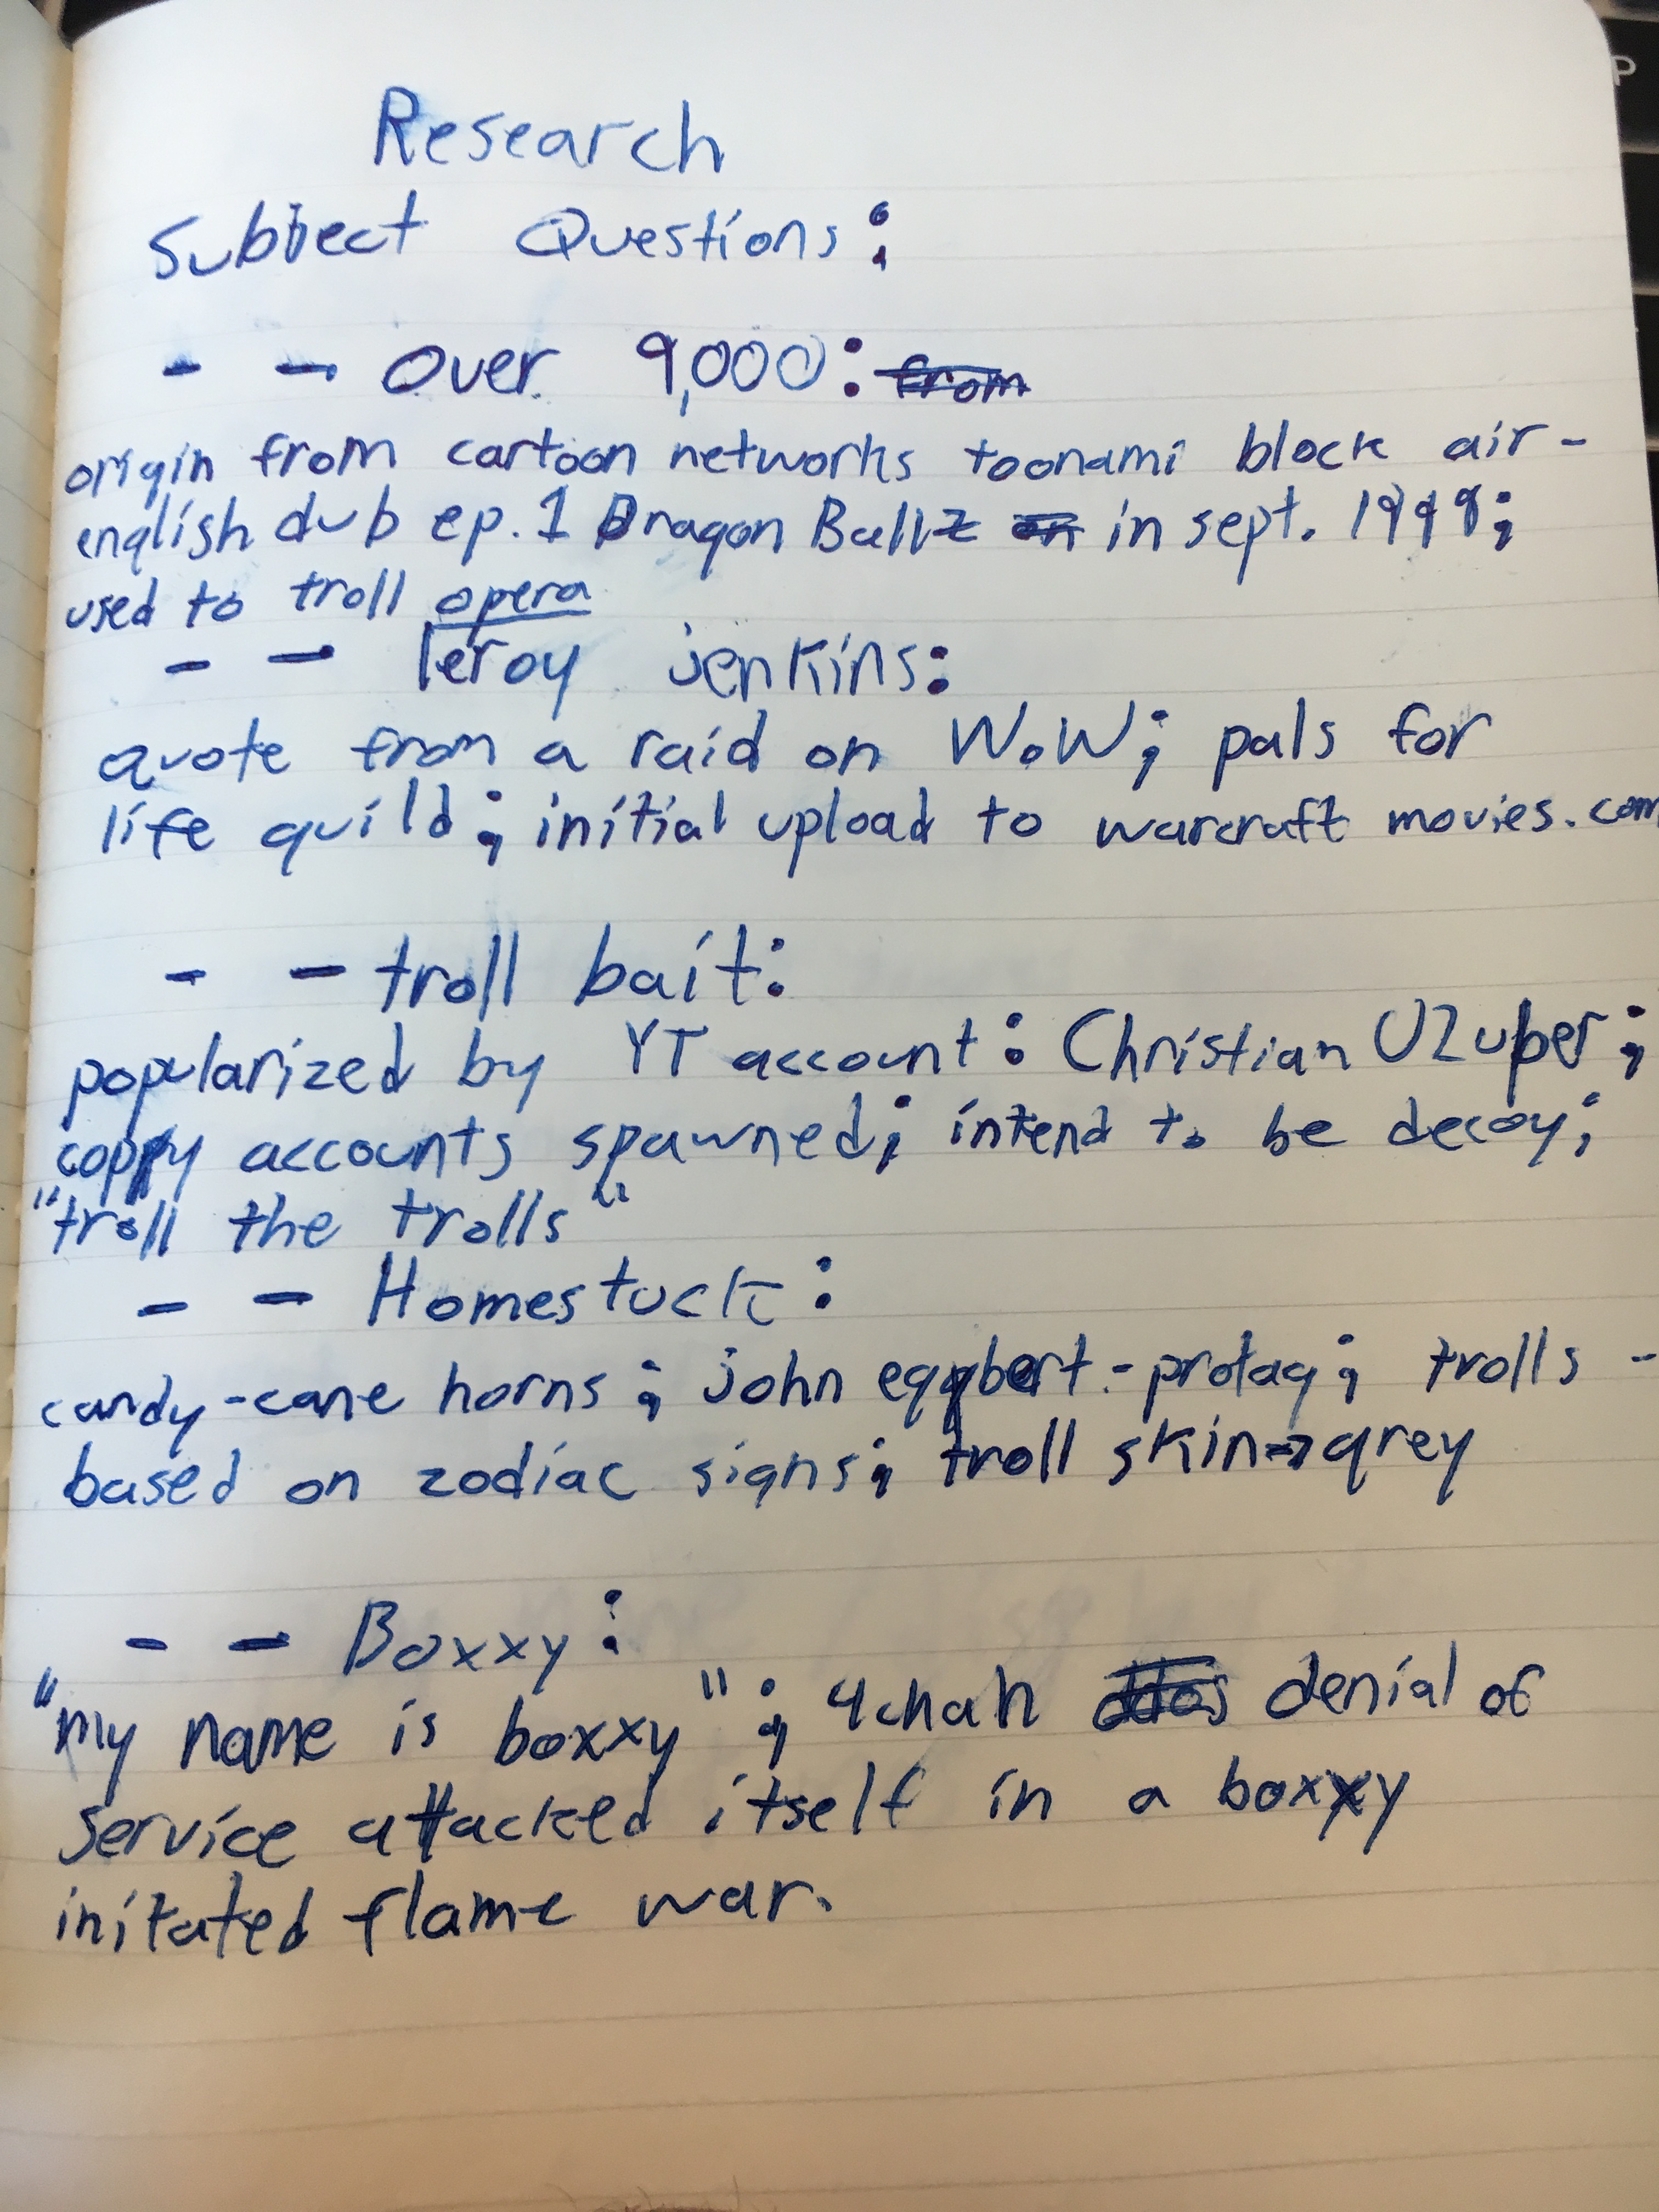 Research
Subject Questions:
- - Over 9,000: from
origin from cartoon networks toonami block air-
english dub ep. 1 Dragon Ball Z on in sept. 1998;
used to troll opera
- - leroy jenkins:
quote from a raid on WoW; pals for
life guild; initial upload to warcraft movies.com
- - troll bait:
popularized by YT account: Christian U2uber;
coppy accounts spawned; intend to be decoy;
"troll the trolls"
- - Homestuck:
candy-cane horns; john eggbert - protag; trolls -
based on zodiac signs; troll skin→grey
- - Boxxy:
"my name is boxxy"; 4chan ddos denial of
service attacked itself in a boxxy
initated flame war.
P